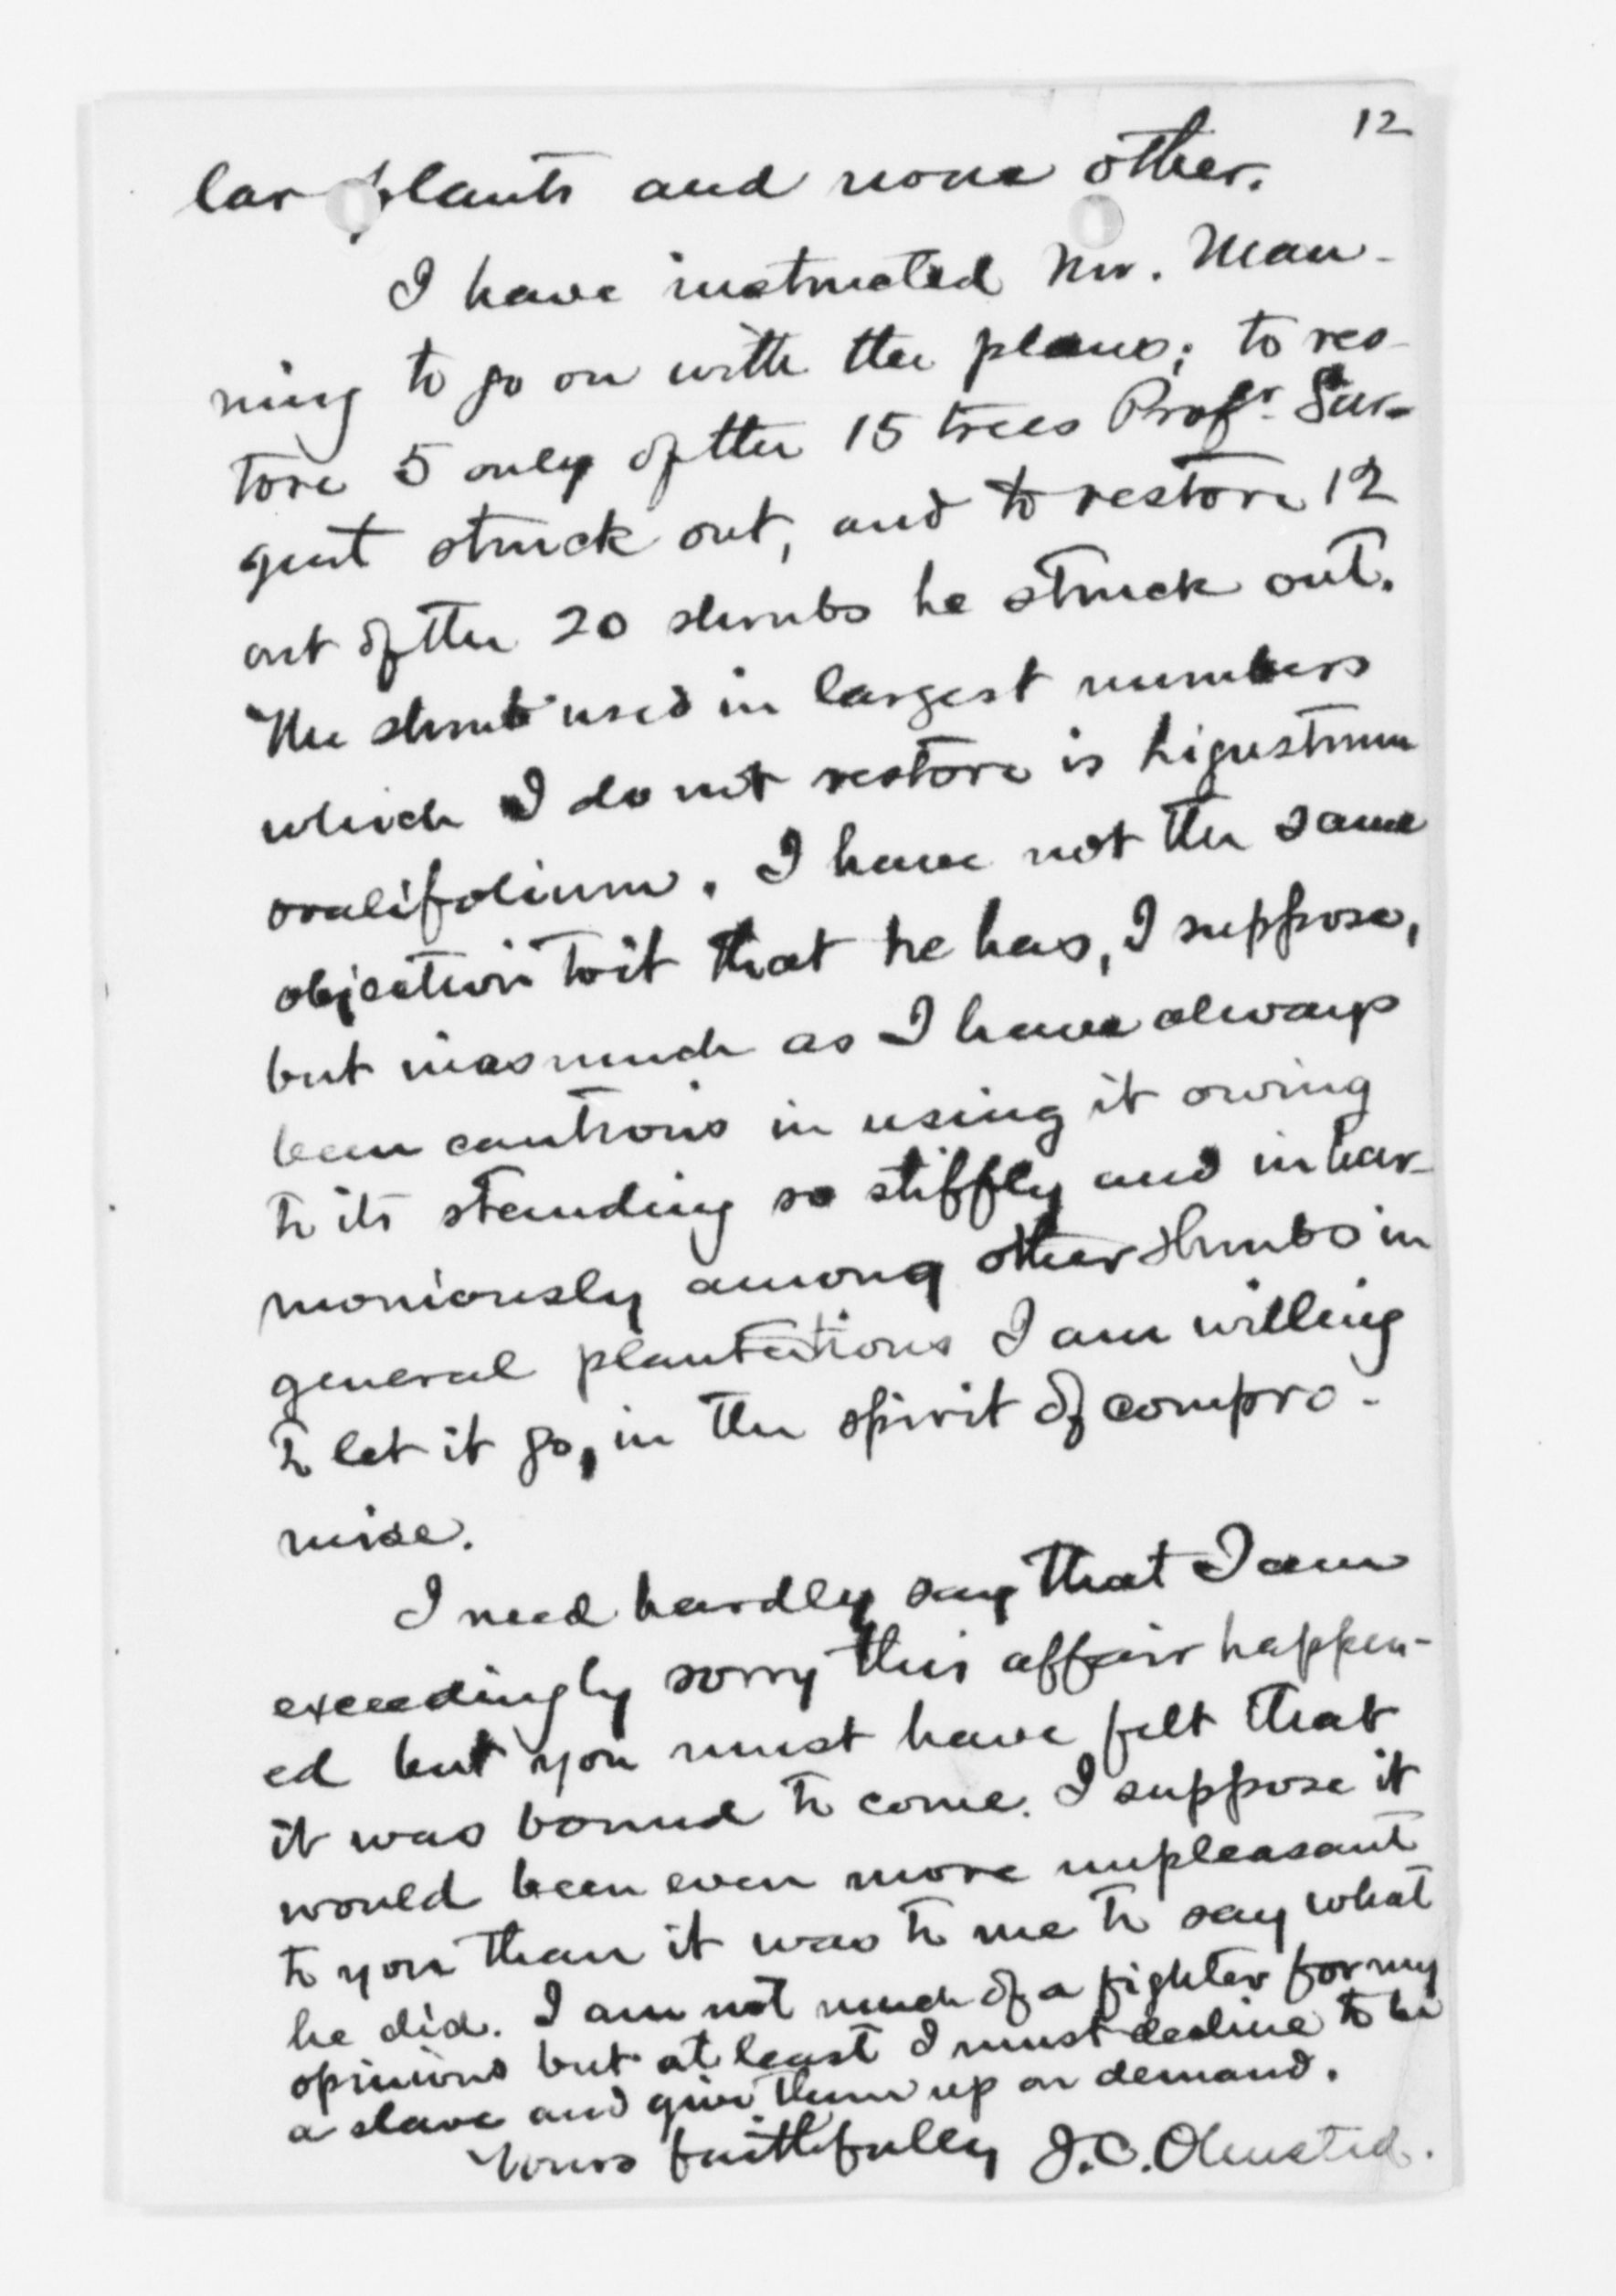 12
lar plants and none other.
I have instructed Mr. Man-
ning to go on with the plans; to res-
tore 5 only of the 15 trees Profr. Sar-
gent struck out, and to restore 12
out of the 20 shrubs he struck out.
The shrub used in largest numbers
which I do not restore is Ligustrum
ovalifolium. I have not the same
objection to it that he has, I suppose,
but inasmuch as I have always
been cautious in using it owing
to its standing so stiffly and inhar-
moniously among other shrubs in
general plantations I am willing
to let it go, in the spirit of compro-
mise.
I need hardly say that I am
exceedingly sorry this affair happen-
ed but you must have felt that
it was bound to come. I suppose it
would been even more unpleasant
to you than it was to me to say what
he did. I am not much of a fighter for my
opinions but at least I must decline to be
a slave and give them up on demand.
Yours faithfully J.C. Olmsted.